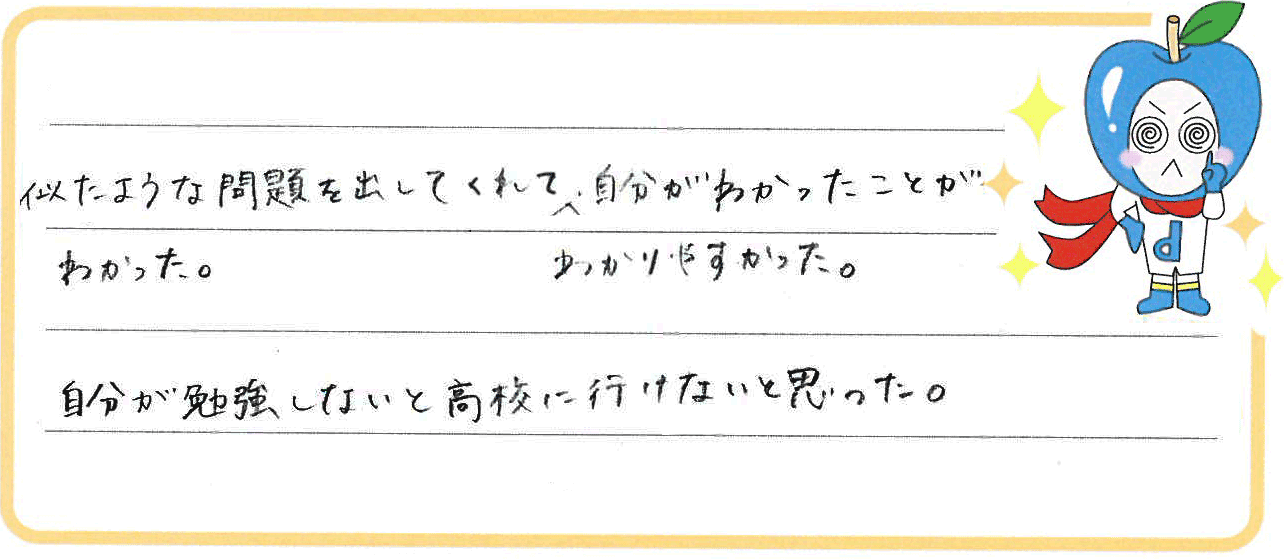 似たような問題を出してくれて、自分がわかったことが
わかった。 わかりやすかった。
自分が勉強しないと高校に行けないと思った。
d